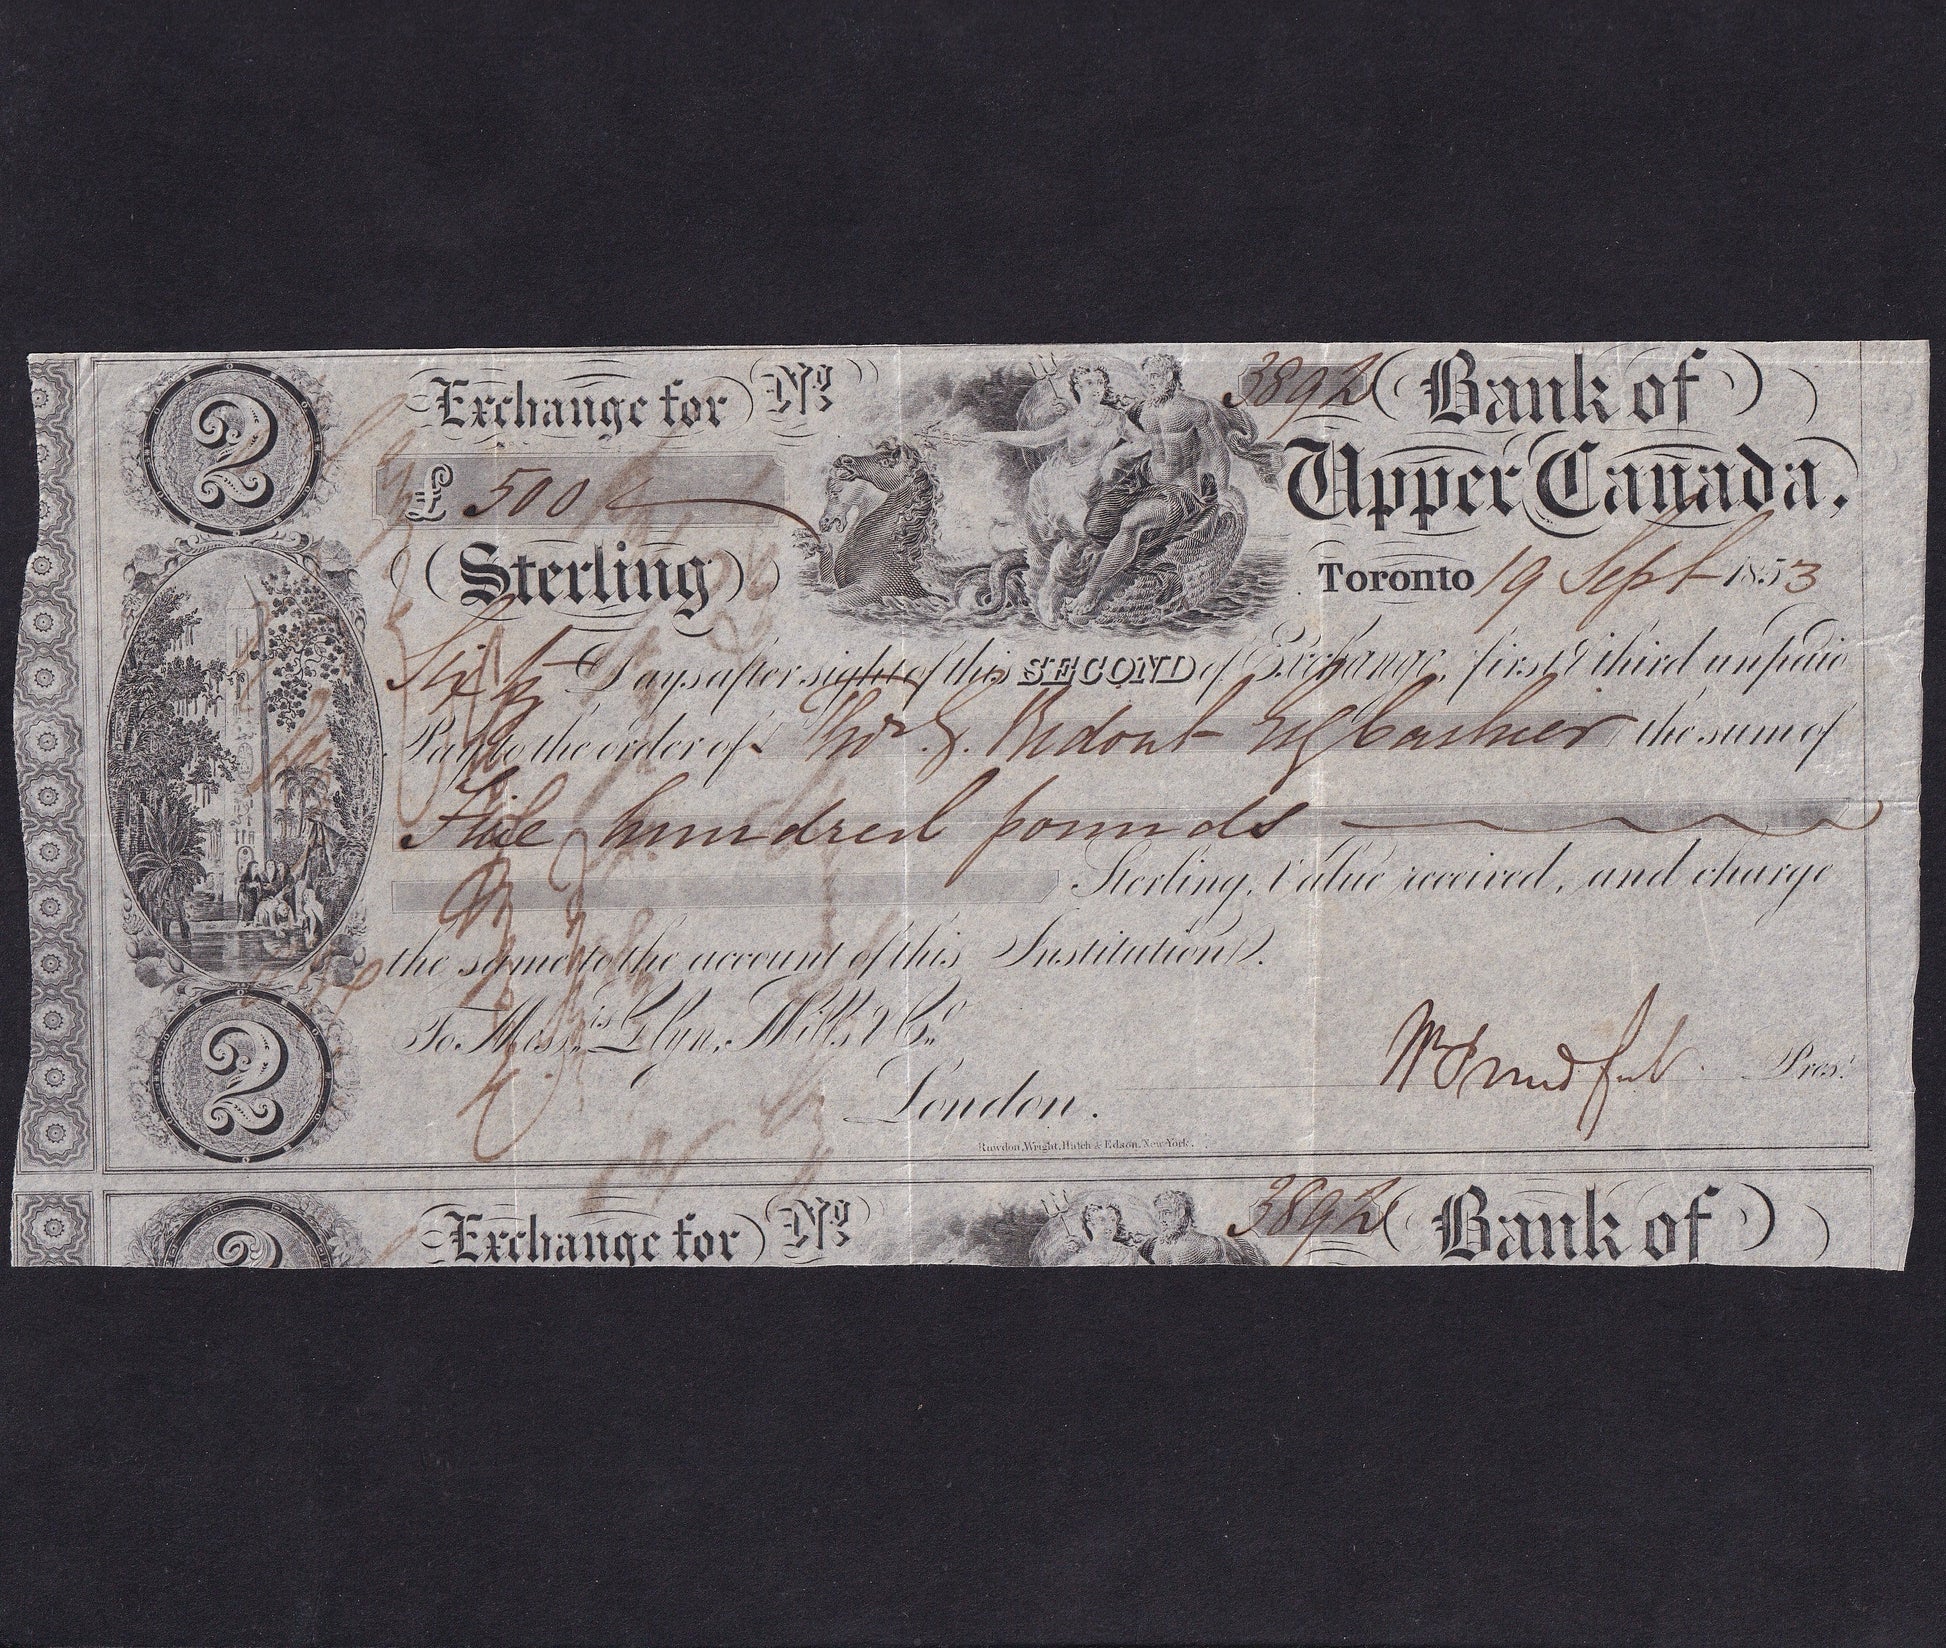 2
Exchange for No 3892 Bank of
£ 500 Upper Canada.
Sterling Toronto 19 Sept 1853
Sixty Days after sight of this SECOND of Exchange, first & third unpaid
Pay to the order of Thos. G. Ridout Esq Cashier the sum of
Five hundred pounds
Sterling, Value received, and charge
the same to the account of this Institution.
To Messrs Glyn, Mills & Co.
London.
Wm Proudfoot Prest
2
Rawdon, Wright, Hatch & Edson, New-York.
2
Exchange for No 3892 Bank of